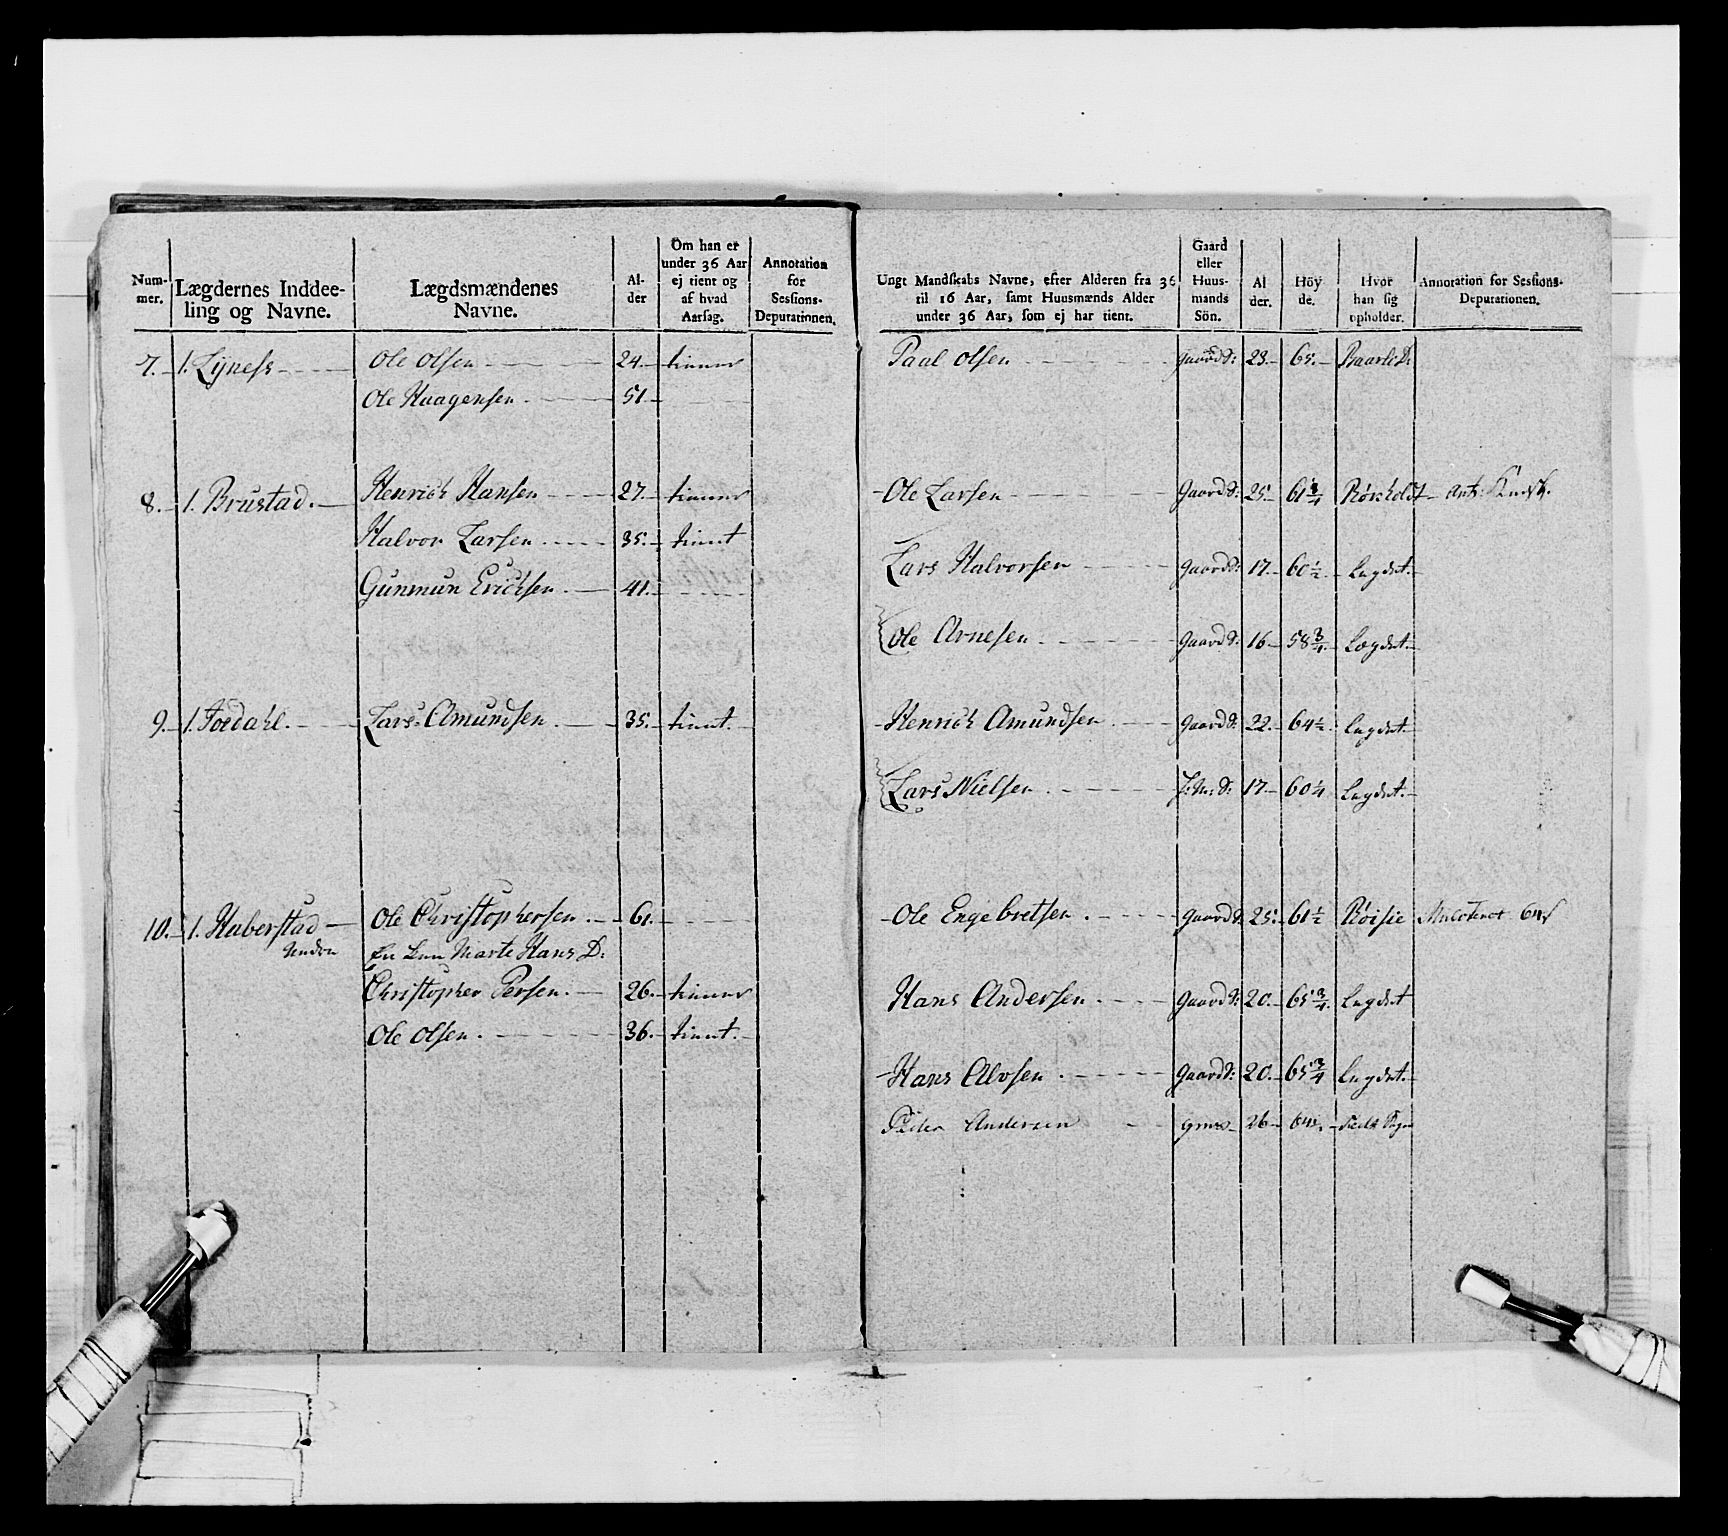 Num-
mer.
Lægdernes Inddee-
ling og Navne.
Lægdsmændenes
Navne.
Al-
der
Om han er
under 36 Aar
ej tient og
af hvad
Aarsag.
Annotation
for
Sessions-
Deputationen.
7. 1. Lyness Ole Olsen 24 tiener
Ole Haagensen 51
8. 1. Brustad. Henrich Hansen 27 tiener
Halvor Larsen 35 tient
Gunmun Erichsen 41
9. 1. Joedahl. Lars Amundsen 35 tient
10. 1. Haberstad Ole Christophersen 61
Nedre En Enn Marte Hans D:
Christopher Persen 26 tiener
Ole Olsen 36 tient
Ungt Mandskabs Navne, efter Alderen fra 36
til 16 Aar, samt Huusmænds Alder
under 36 Aar, som ej har tient.
Gaard
eller
Huus-
mands
Sön.
Al
der.
Höy
de.
Hvor
han sig
opholder.
Annotation for Sessions-
Deputationen.
Paal Olsen gaardS: 23 65
Ole Larsen gaardS: 25 61 3/4 Rörholdt
Lars Halvorsen gaardS: 17 60 1/2 Lægdet
Ole Arnesen gaardS: 16 58 3/4 Lægdet
Henrich Amundsen gaardS: 22 64 1/2 Lægdet
Lars Nielsen 17 60 1/4 Lægdet
Ole Engebretsen gaardS: 25 61 1/2 Röisie
Hans Andersen gaardS: 20 65 3/4 Lægdet
Hans Alvsen gaardS: 20 65 3/4 Lægdet
Peder Andersen 26